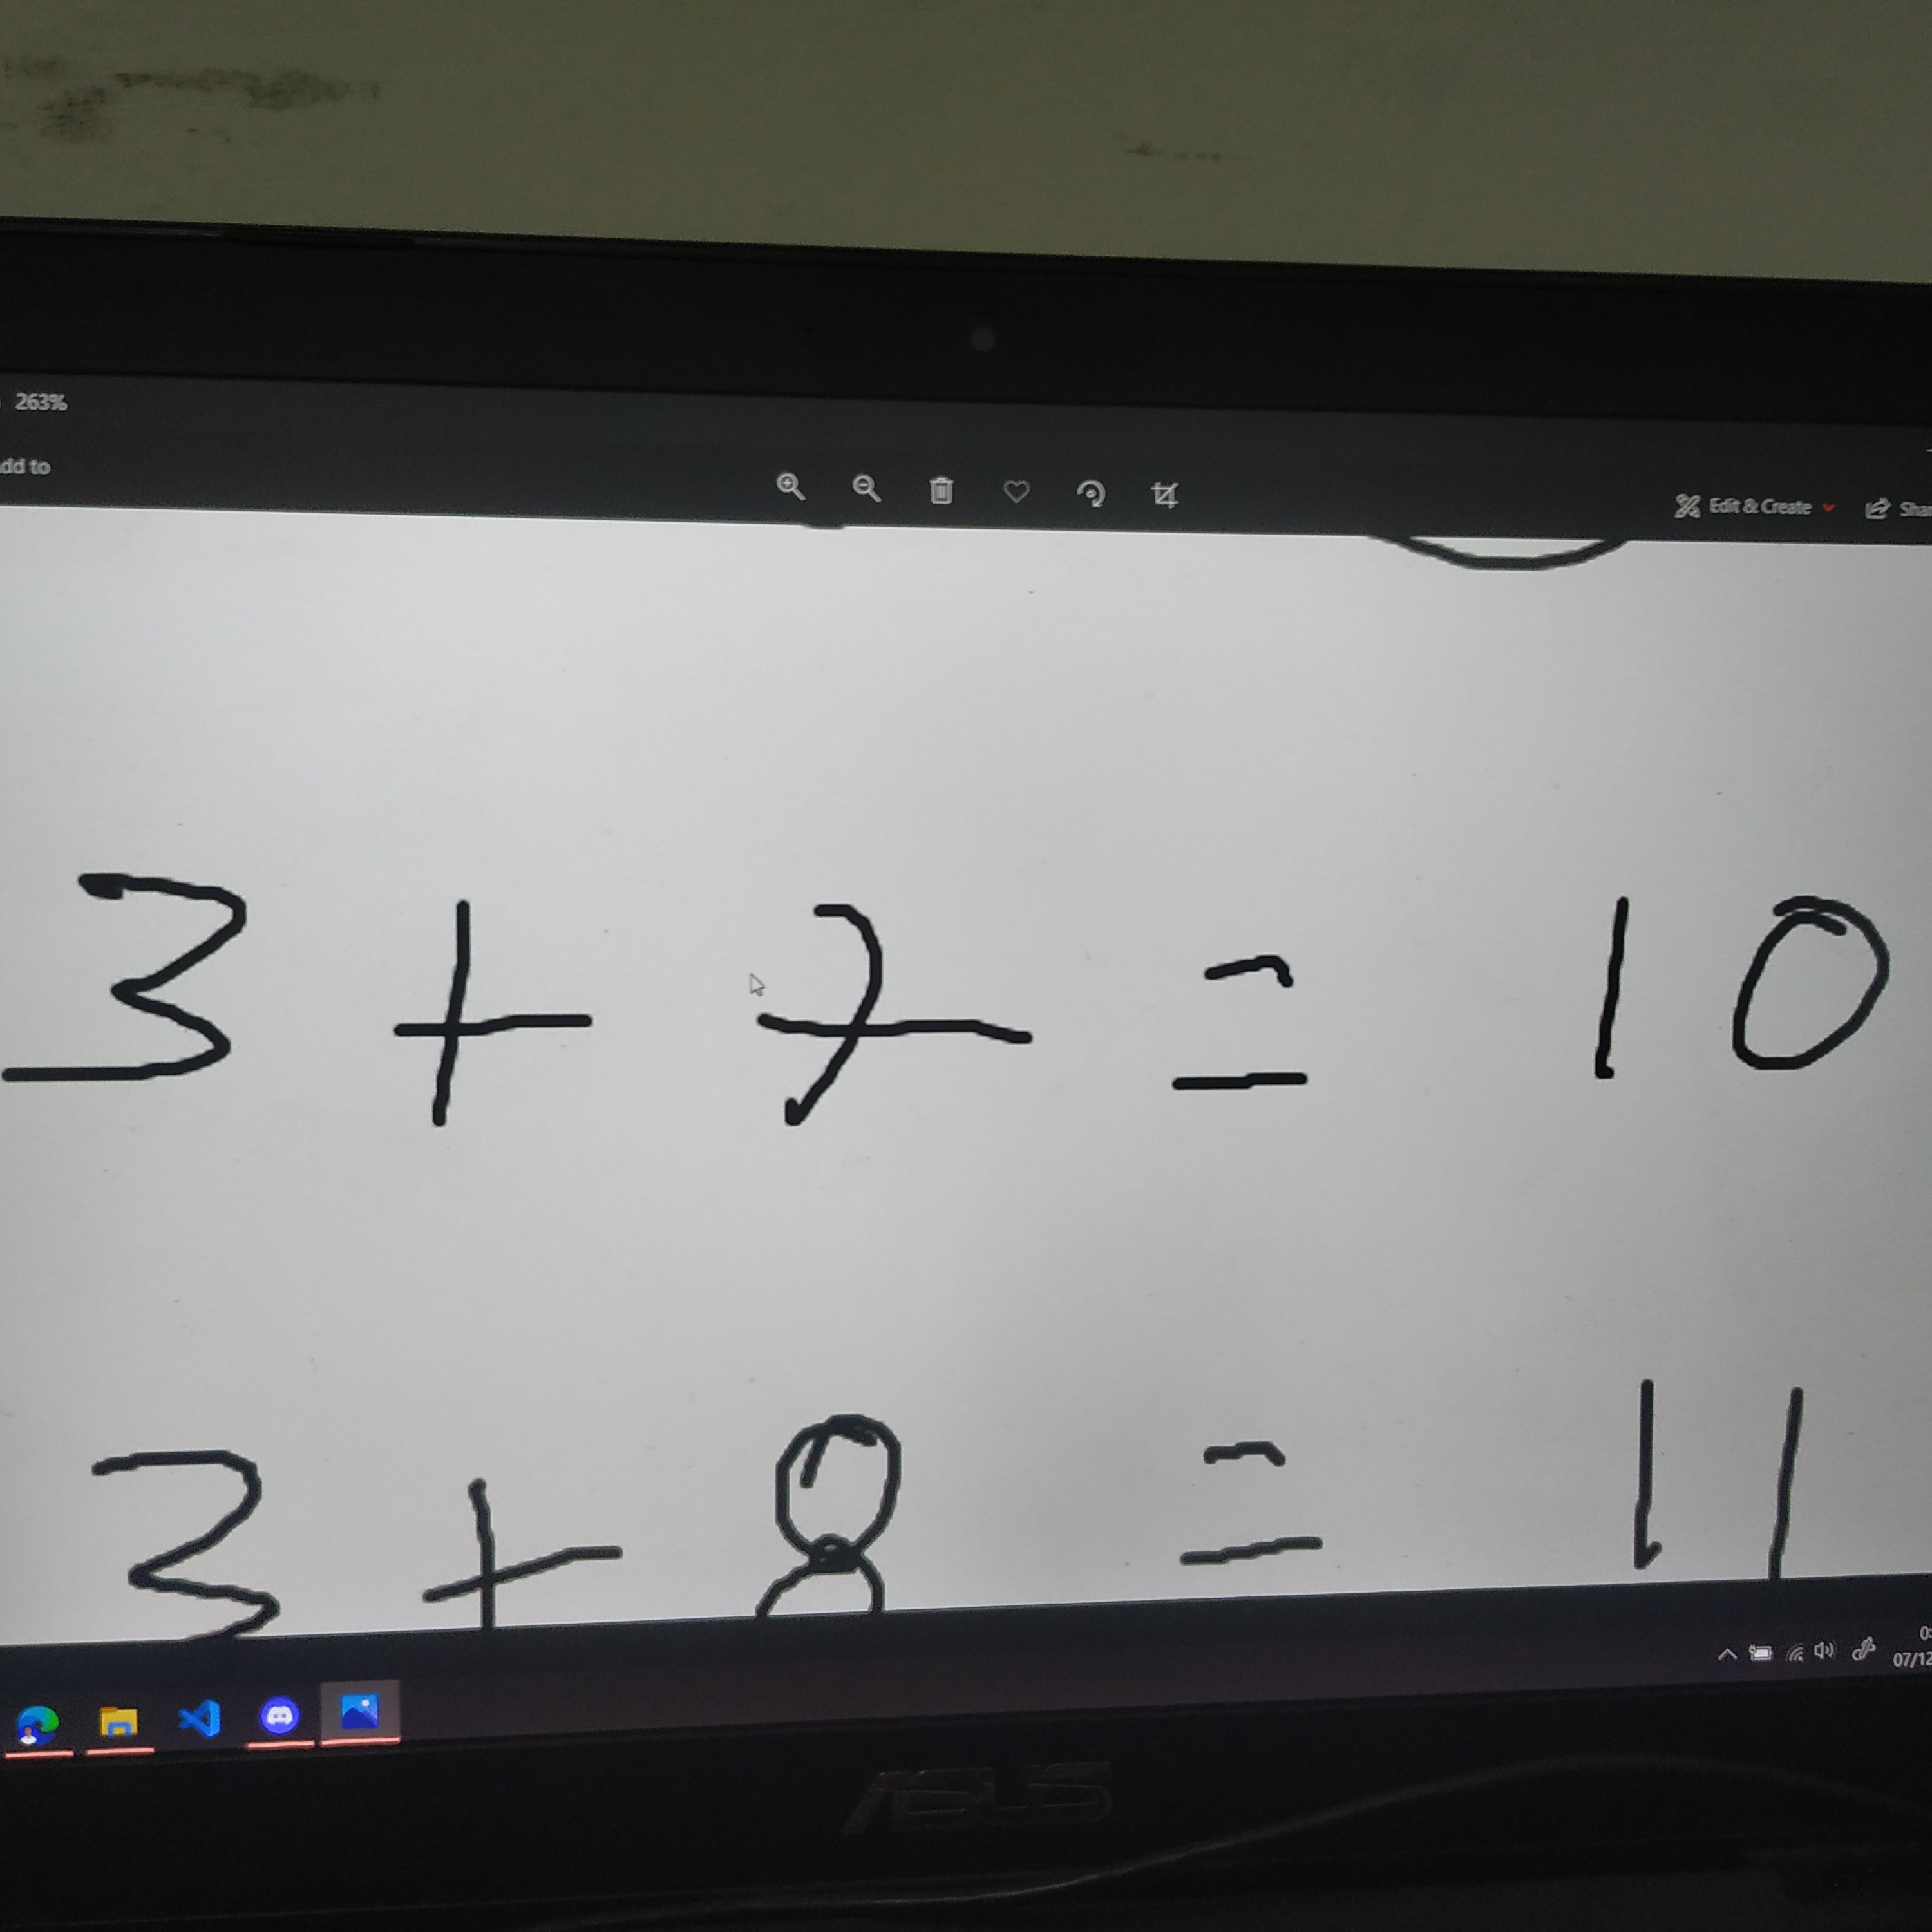 263%
dd to
Edit & Create
Shar
3 + 7 = 10
3 + 8 = 11
0:
07/12
ASUS